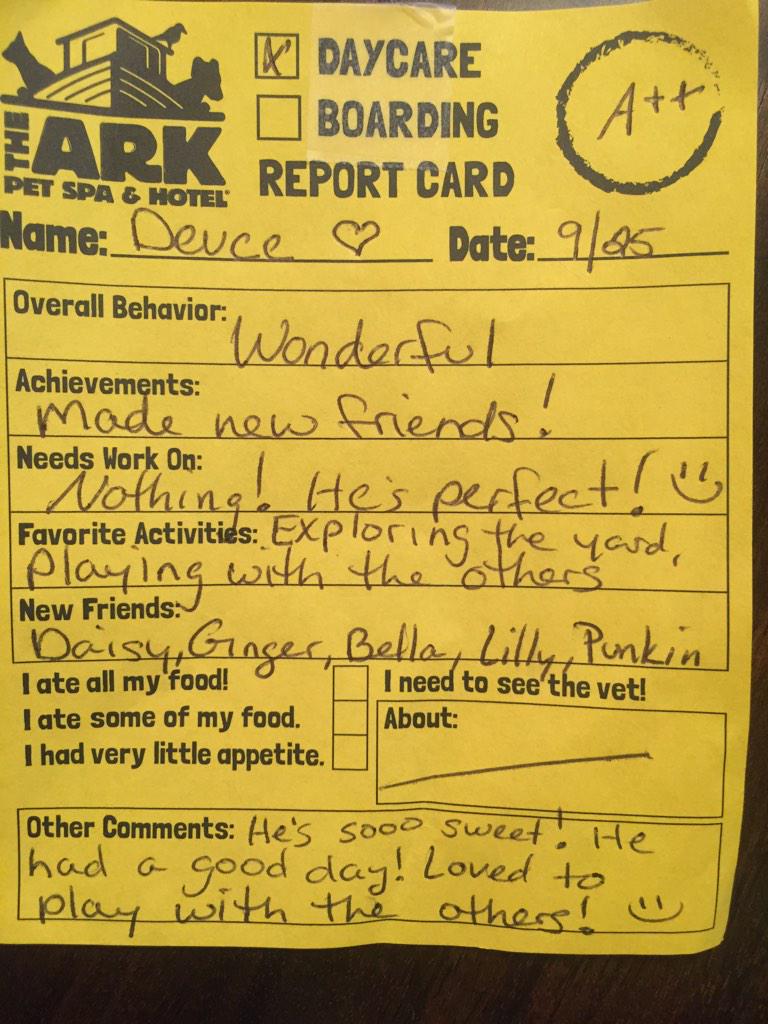 DAYCARE
BOARDING
REPORT CARD
A++
THE ARK
PET SPA & HOTEL
Name: Deuce ♡ Date: 9/25
Overall Behavior:
Wonderful
Achievements:
Made new friends!
Needs Work On:
Nothing! He's perfect!
Favorite Activities: Exploring the yard,
playing with the others
New Friends:
Daisy, Ginger, Bella, Lilly, Punkin
I ate all my food!
I ate some of my food.
I had very little appetite.
I need to see the vet!
About:
Other Comments: He's sooo sweet! He
had a good day! Loved to
play with the others!